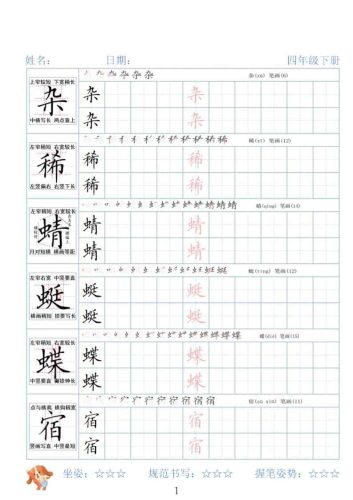 姓名： 日期： 四年级下册
上窄较短 下宽稍长 杂(zá) 笔画(6)
杂 杂 杂
中横写长 两点靠上 杂
左窄稍短 右宽较长 稀(xī) 笔画(12)
稀 稀 稀
左竖偏右 右竖下长 稀 稀
左窄稍短 右宽较长 蜻(qīng) 笔画(14)
蜻 蜻 蜻
月对短横 横画等距 蜻 蜻
左窄右宽 中竖要直 蜓(tíng) 笔画(12)
蜓 蜓 蜓
横画稍短 捺要写长 蜓 蜓
左窄较短 右宽较长 蝶(dié) 笔画(15)
蝶 蝶 蝶
中竖要直 蝶 蝶
点与横宽 宿(sù xiǔ) 笔画(11)
宿 宿 宿
竖画写直 中竖最短 宿 宿
坐姿：☆☆☆ 规范书写：☆☆☆ 握笔姿势：☆☆☆
1